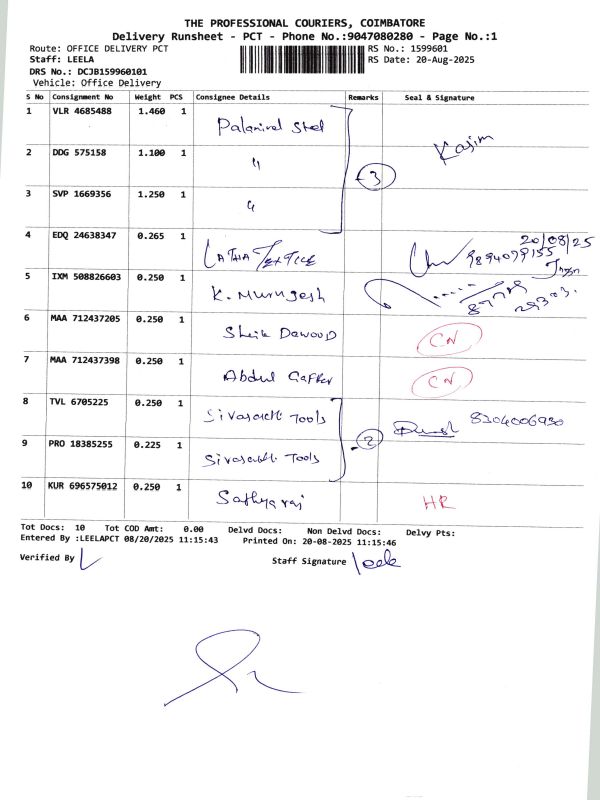 THE PROFESSIONAL COURIERS, COIMBATORE
Delivery Runsheet - PCT - Phone No.:9047080280 - Page No.:1
Route: OFFICE DELIVERY PCT
RS No.: 1599601
Staff: LEELA
RS Date: 20-Aug-2025
DRS No.: DCJB159960101
Vehicle: Office Delivery
S No Consignment No Weight PCS Consignee Details Remarks Seal & Signature
1 VLR 4685488 1.460 1 Palanivel Steel Kasim
2 DDG 575158 1.100 1 "
3
3 SVP 1669356 1.250 1 "
4 EDQ 24638347 0.265 1 LATHA TEXTILE 20/08/25
9894079155
5 IXM 508826603 0.250 1 K. Murugesh
6 MAA 712437205 0.250 1 Sheik Dawood CN
7 MAA 712437398 0.250 1 Abdul Gaffer CN
8 TVL 6705225 0.250 1 Sivasakti Tools
2
9 PRO 18385255 0.225 1 Sivasakti Tools
10 KUR 696575012 0.250 1 Sathyaraj HR
Tot Docs: 10 Tot COD Amt: 0.00 Delvd Docs: Non Delvd Docs: Delvy Pts:
Entered By :LEELAPCT 08/20/2025 11:15:43 Printed On: 20-08-2025 11:15:46
Verified By
Staff Signature leela